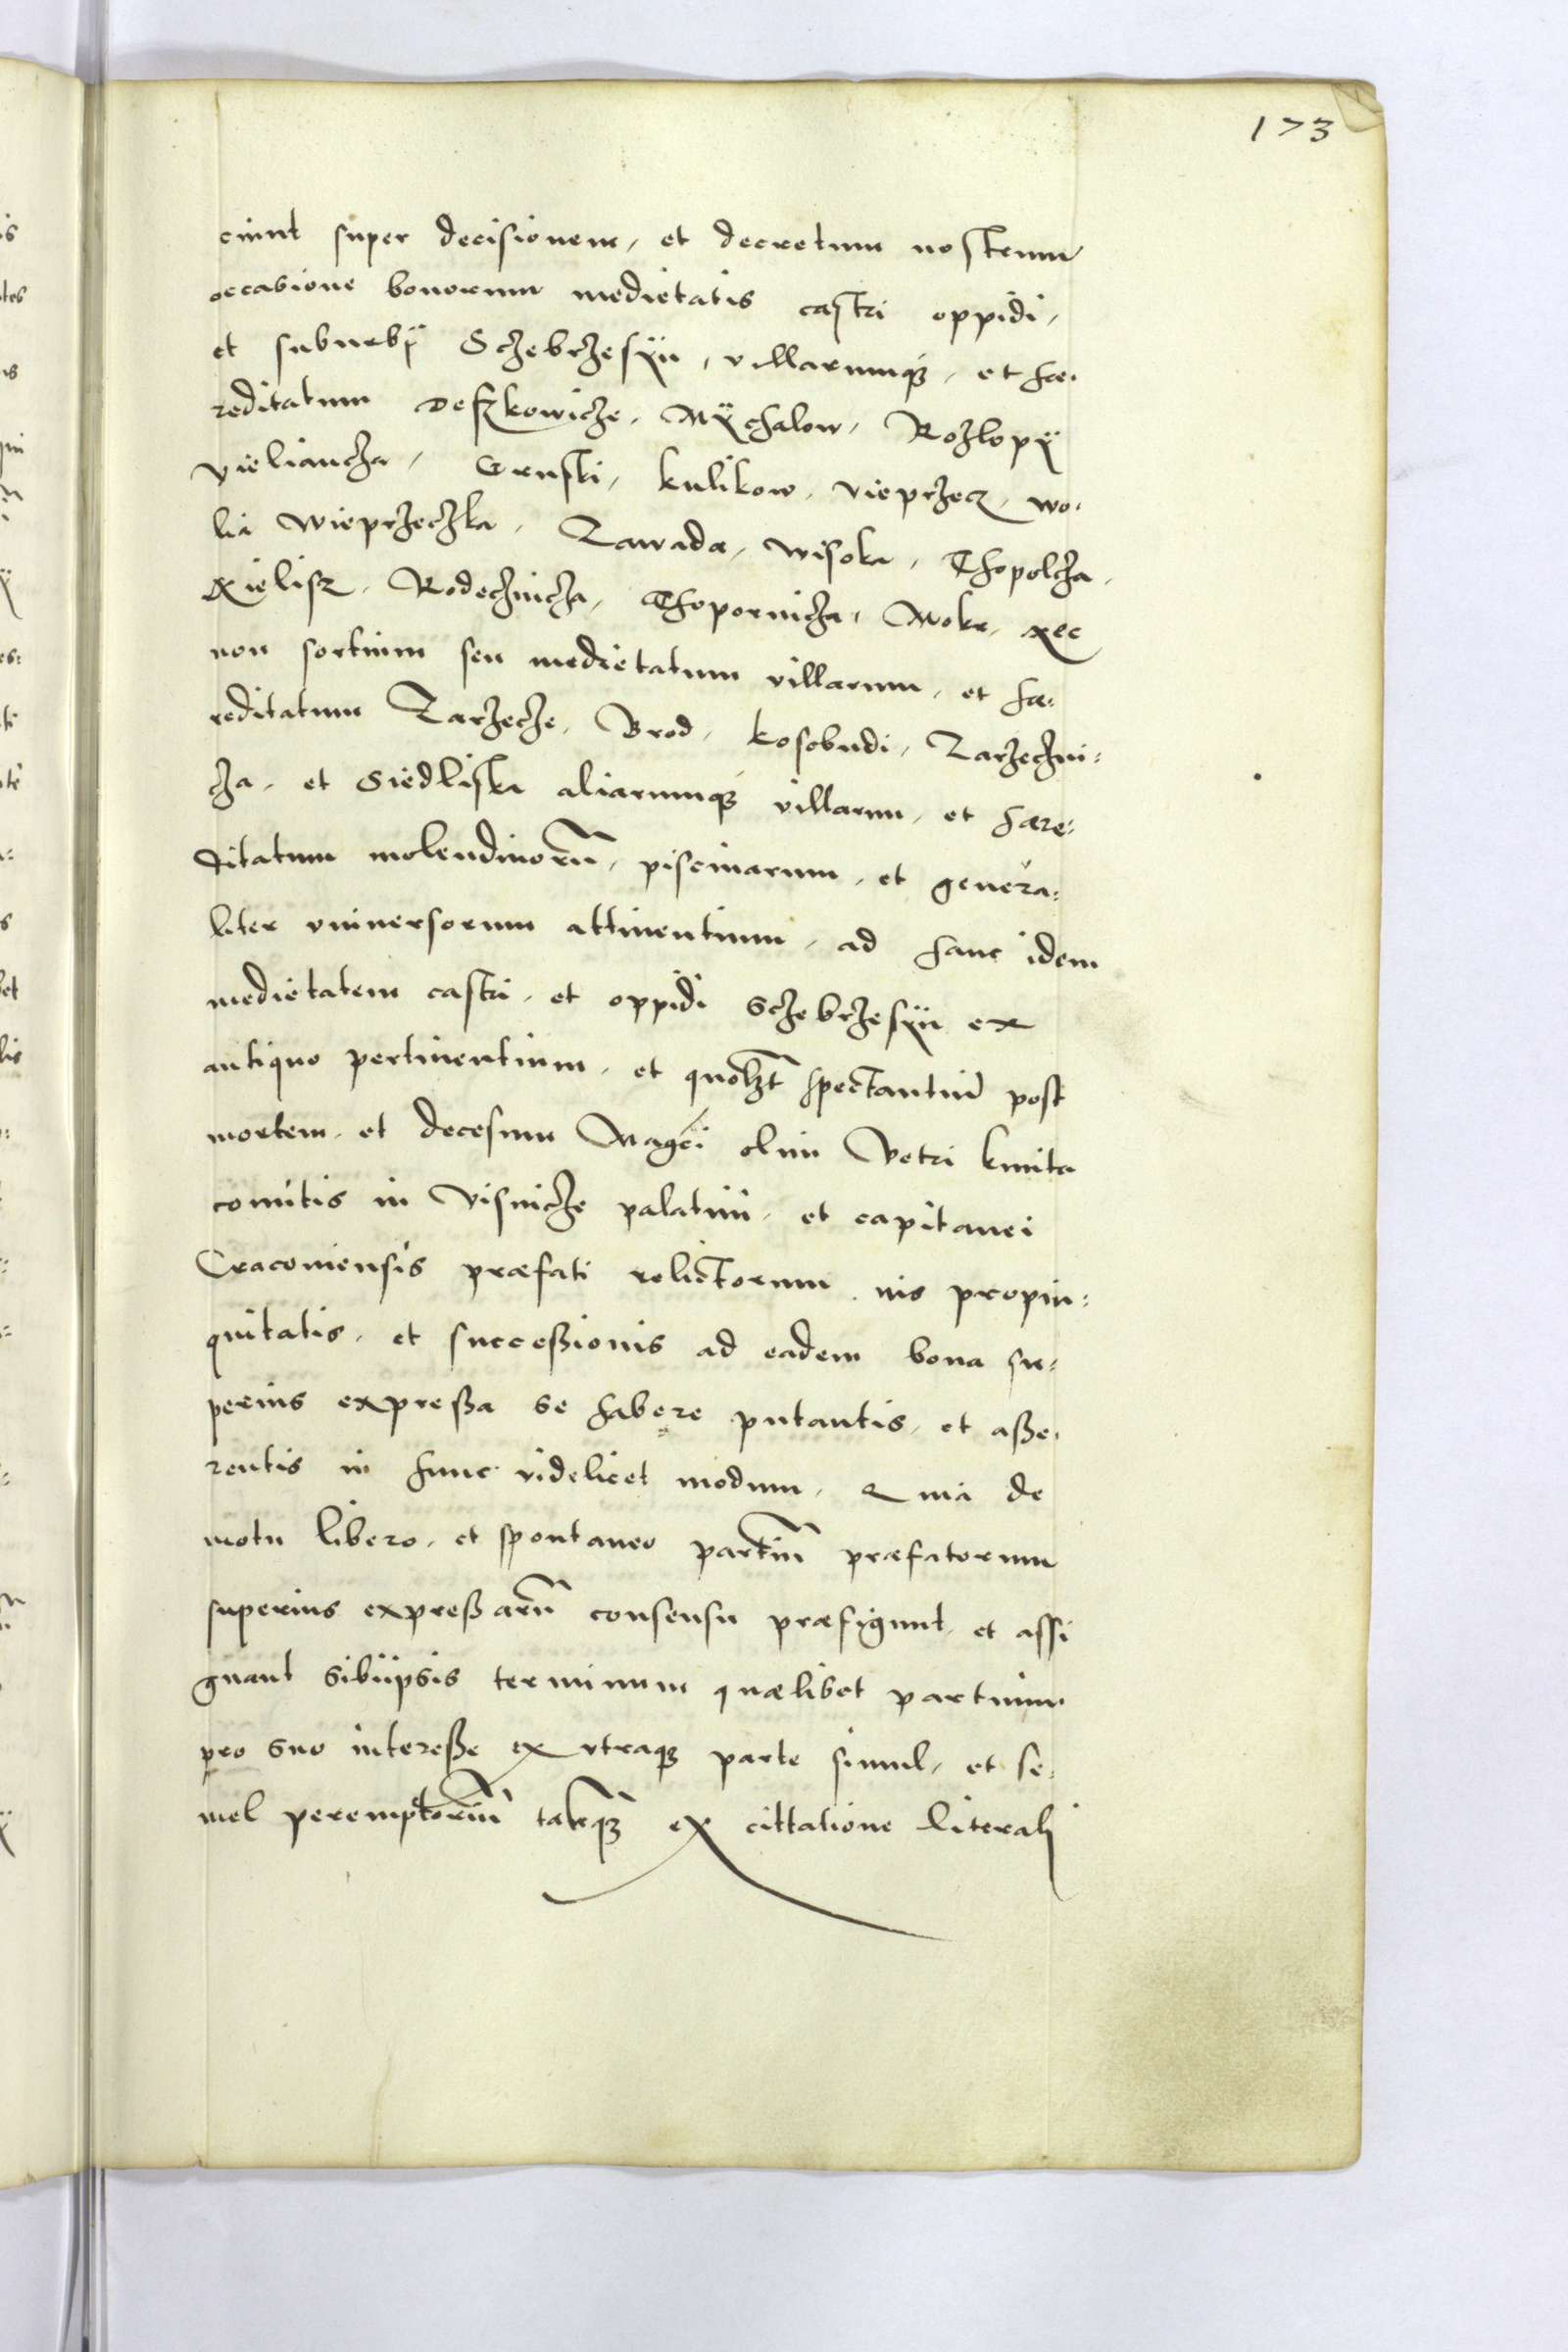 173
ciunt super decisionem, et decretum nostrum
occasione bonorum medietatis castri oppidi,
et suburbÿ Sczebrzesÿn, villarumq3, et hæ-
reditatum Deszkowicze, Mÿchalow, Rozlopÿ
vieliancza, Gruszki, kulikow, vieprzecz, wo-
lia wieprzeczka, Zawada, wisoka, Thopolcza,
Kielisz, Rodecznicza, Thopornicza, Mokre, Nec
non sortium seu medietatum villarum, et hæ-
reditatum Zarzecze, Brod, kosobudi, Zarzeczni=
cza, et Siedliska aliarumq3 villarum, et hære=
ditatum molendinorū, piscinarum, et genera=
liter vniversorum attinentium, ad hanc idem
medietatem castri, et oppidi Sczebrzesÿn ex
antiquo pertinentium, et quolizt spectantiū post
mortem, et decesum Magci olim Petri kmita
comitis in Visnicze palatini, et capitanei
Cracoviensis præfati relictorum ius propin=
quitatis, et successionis ad eadem bona su=
perius expressa se habere putantis, et asse-
rentis in hunc videlicet modum, Quia de
motu libero, et spontaneo partiū præfatorum
superius expressarū consensu præfigunt, et assi
gnant sibiipsis terminum quælibet partium
pro suo interesse ex vtraq3 parte simul, et se=
mel peremptoriū tanq3 ex cittatione literali